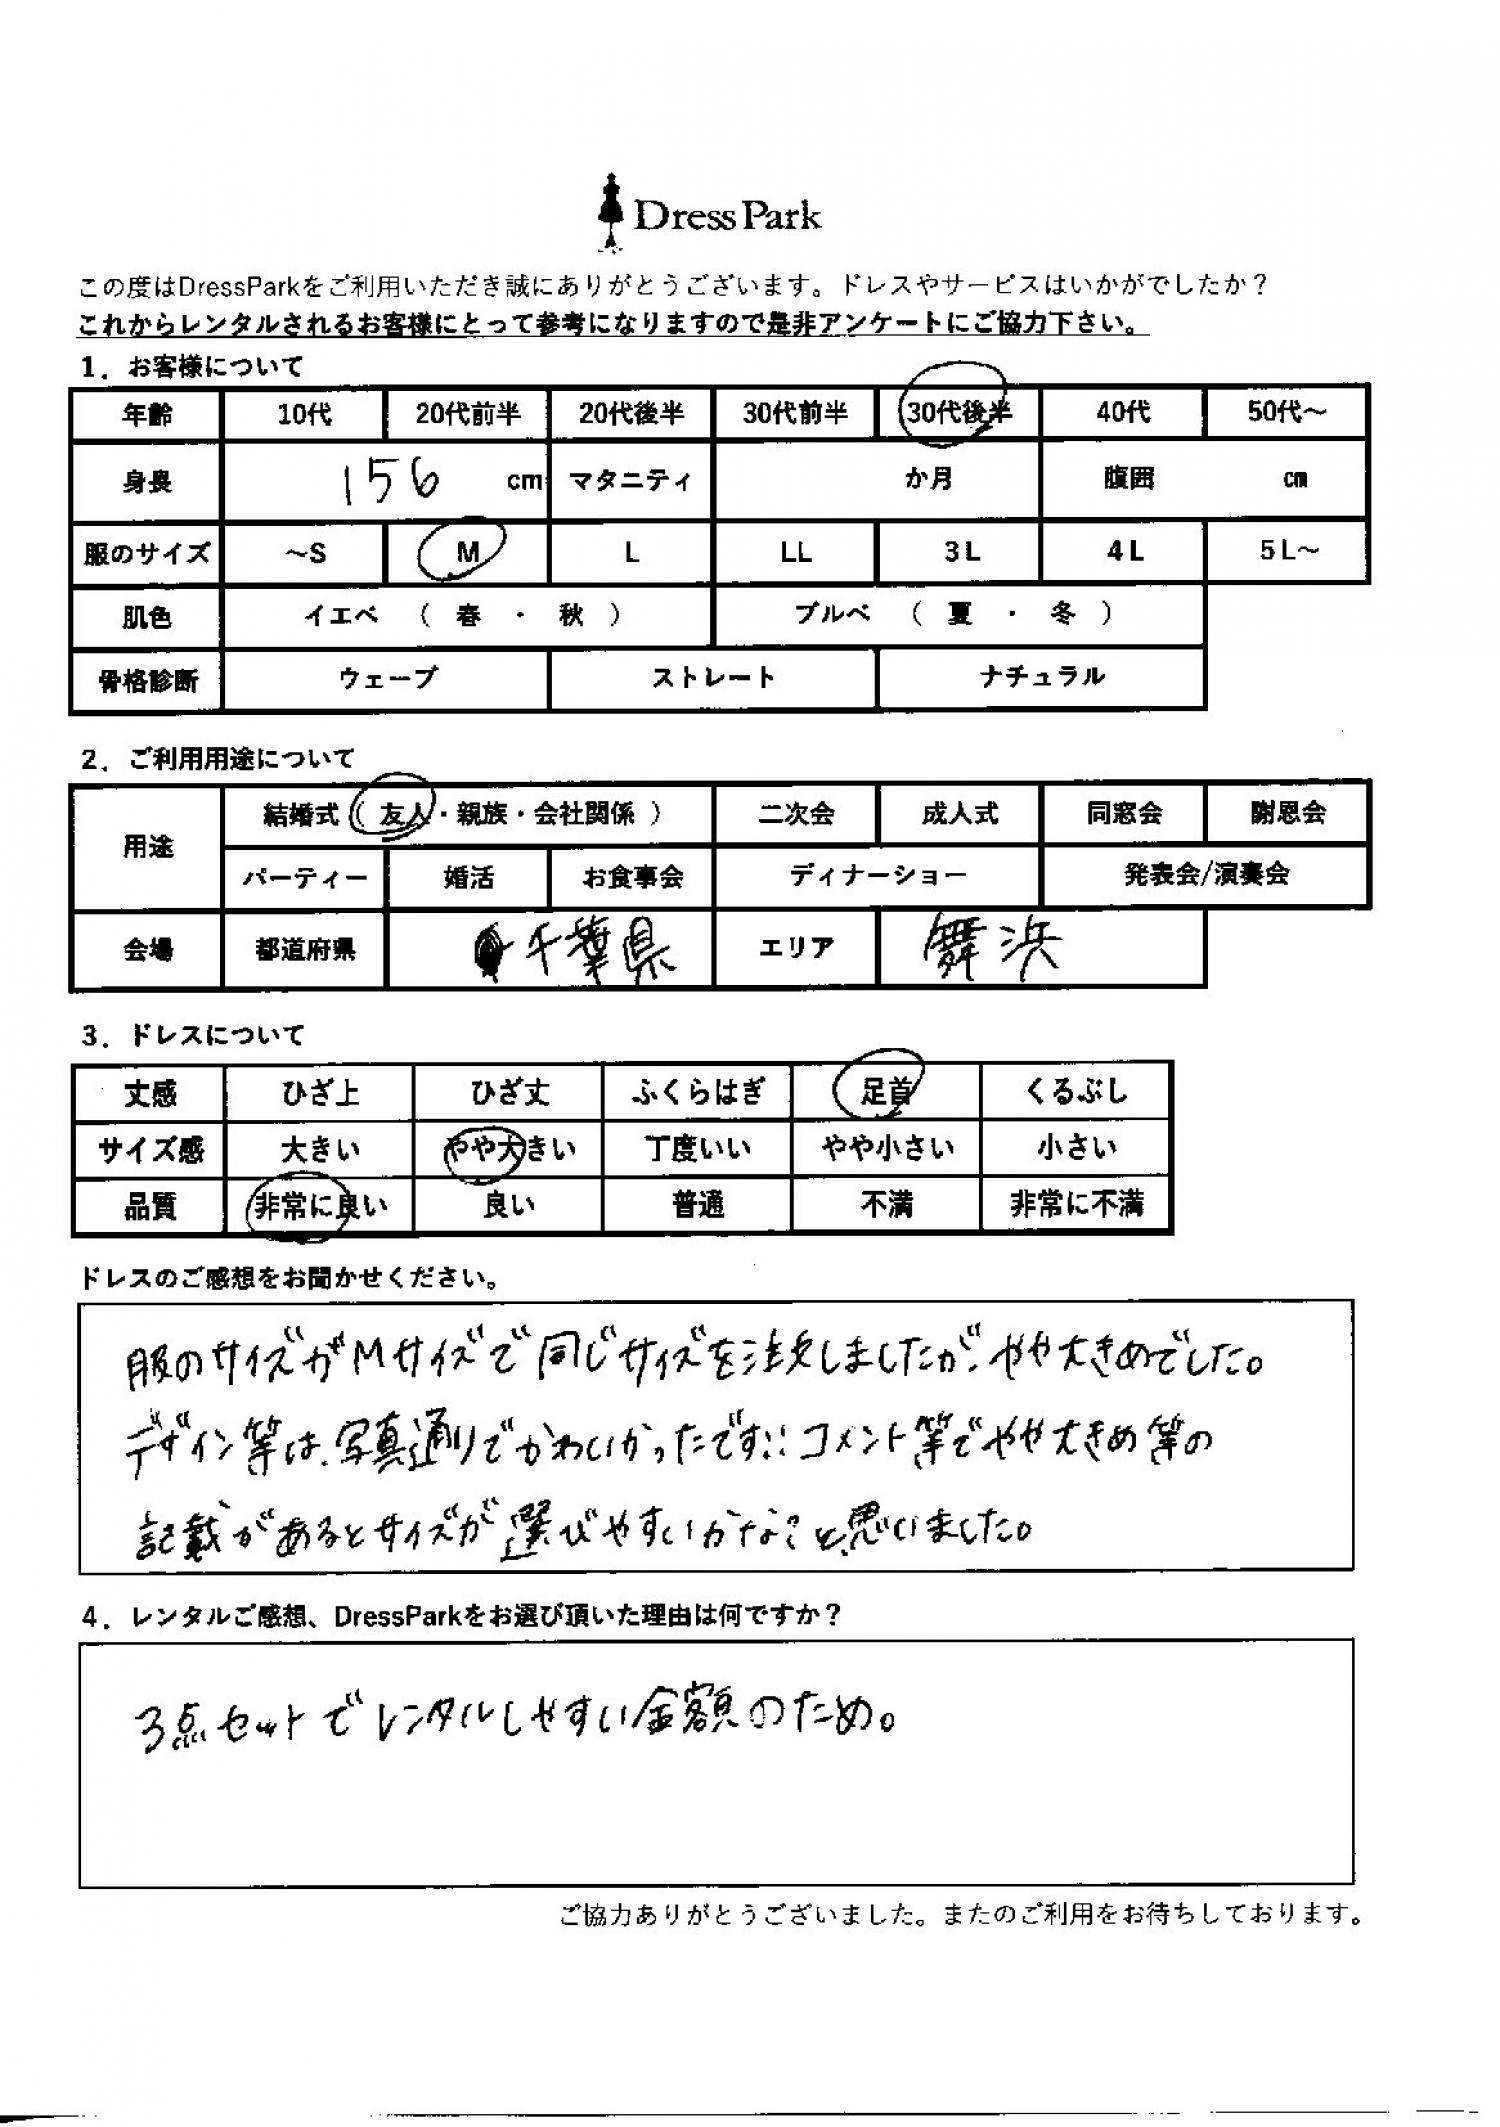 Dress Park
この度はDressParkをご利用いただき誠にありがとうございます。ドレスやサービスはいかがでしたか？
これからレンタルされるお客様にとって参考になりますので是非アンケートにご協力下さい。
1．お客様について
年齢 10代 20代前半 20代後半 30代前半 30代後半 40代 50代～
身長 156 cm マタニティ か月 腹囲 cm
服のサイズ ～S M L LL 3L 4L 5L～
肌色 イエベ （ 春 ・ 秋 ） ブルベ （ 夏 ・ 冬 ）
骨格診断 ウェーブ ストレート ナチュラル
2．ご利用用途について
用途 結婚式（ 友人・親族・会社関係 ） 二次会 成人式 同窓会 謝恩会
パーティー 婚活 お食事会 ディナーショー 発表会/演奏会
会場 都道府県 千葉県 エリア 舞浜
3．ドレスについて
丈感 ひざ上 ひざ丈 ふくらはぎ 足首 くるぶし
サイズ感 大きい やや大きい 丁度いい やや小さい 小さい
品質 非常に良い 良い 普通 不満 非常に不満
ドレスのご感想をお聞かせください。
服のサイズがMサイズで同じサイズを注文しましたが、やや大きめでした。
デザイン等は、写真通りでかわいかったです!! コメント等でやや大きめ等の
記載があるとサイズが選びやすいかな？と思いました。
4．レンタルご感想、DressParkをお選び頂いた理由は何ですか？
3点セットでレンタルしやすい金額のため。
ご協力ありがとうございました。またのご利用をお待ちしております。